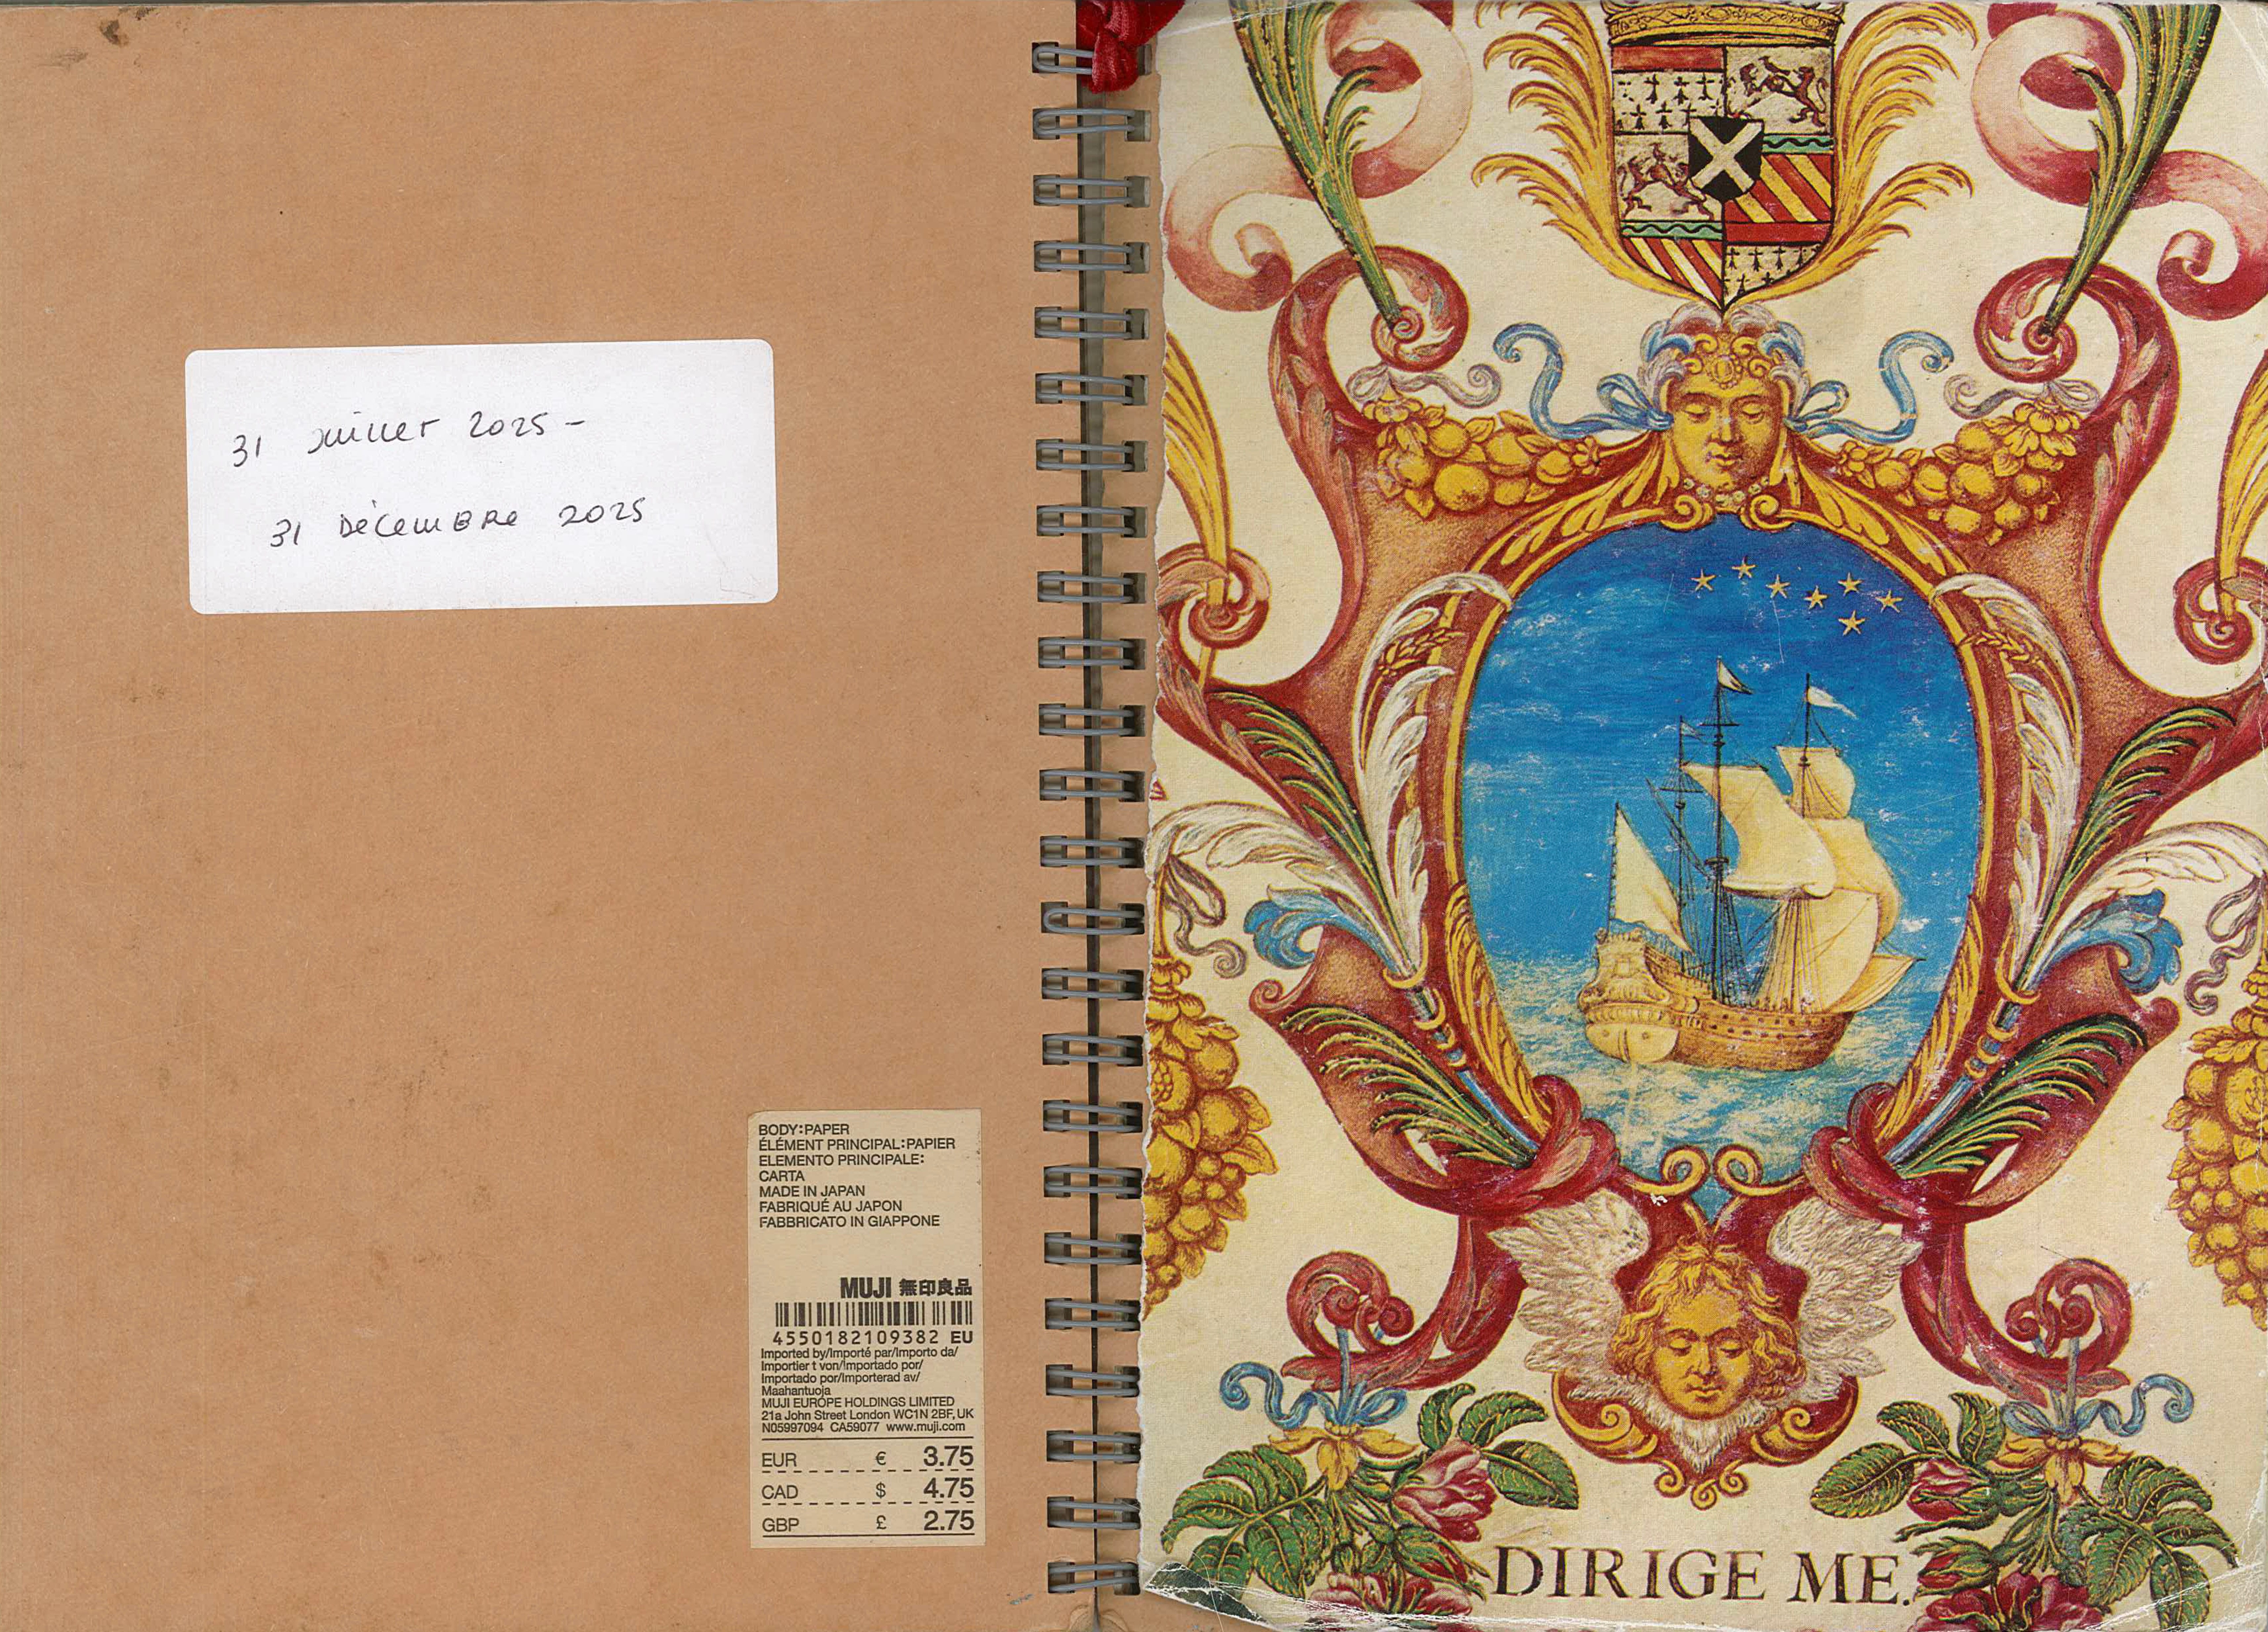 31 Juillet 2025 -
31 Décembre 2025
BODY:PAPER
ÉLÉMENT PRINCIPAL:PAPIER
ELEMENTO PRINCIPALE:
CARTA
MADE IN JAPAN
FABRIQUÉ AU JAPON
FABBRICATO IN GIAPPONE
MUJI 無印良品
4550182109382 EU
Imported by/Importé par/Importo da/
Importier t von/Importado por/
Importado por/Importerad av/
Maahantuoja
MUJI EUROPE HOLDINGS LIMITED
21a John Street London WC1N 2BF, UK
N05997094 CA59077 www.muji.com
EUR € 3.75
CAD $ 4.75
GBP £ 2.75
DIRIGE ME.